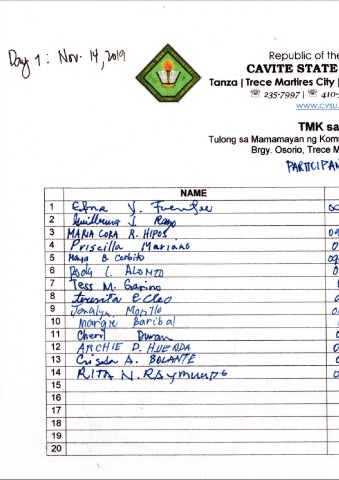 Day 1: Nov. 14, 2019
Republic of the
CAVITE STATE
Tanza | Trece Martires City |
☏ 235-7997 | ☏ 410-
www.cvsu.
TMK sa
Tulong sa Mamamayan ng Kom
Brgy. Osorio, Trece M
PARTICIPAN
NAME
1 Edna V. Fuentes
2 Guillerma J. Rayo
3 MARIA CORA R. HIPOS
4 Priscilla Mariano
5 Maya B. Corbito
6 Rody L. ALONZO
7 Tess M. Garino
8 teresita E Cleo
9 Jonalyn Morillo
10 Margie Baribal
11 Cheryl Duran
12 ARCHIE D. HUENDA
13 Crisela A. BOLANTE
14 RITA N. RAymundo
15
16
17
18
19
20